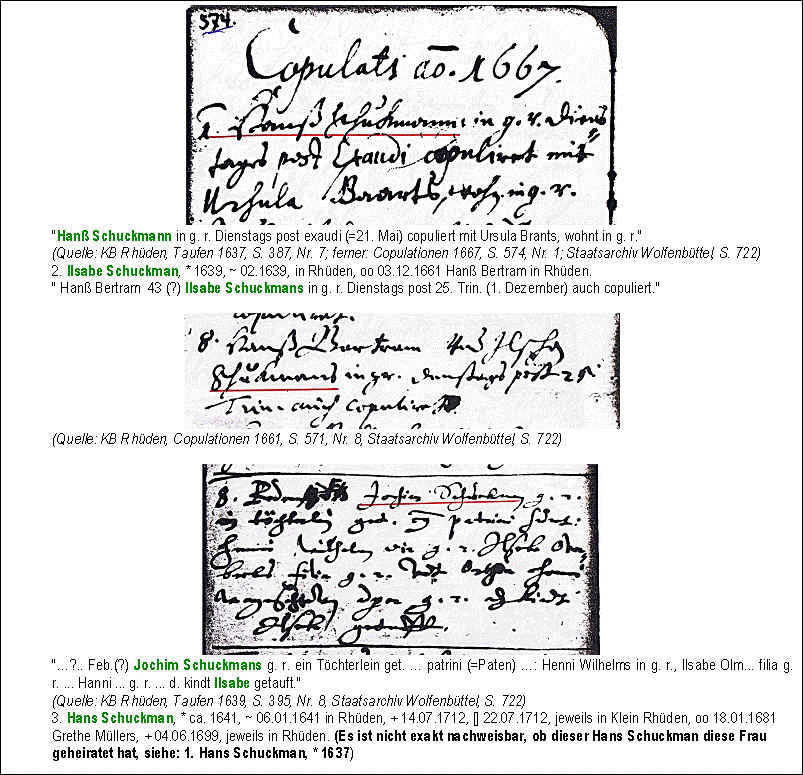 574.
Copulati ao. 1667.
1. Hanß Schuckmann in g. r. Diens
tages post Exaudi copuliret mit
Urhula Baarts, wohn. in g. r.
"Hanß Schuckmann in g. r. Dienstags post exaudi (=21. Mai) copuliert mit Ursula Brants, wohnt in g. r."
(Quelle: KB Rhüden, Taufen 1637, S. 387, Nr. 7; ferner: Copulationen 1667, S. 574, Nr. 1; Staatsarchiv Wolfenbüttel, S. 722)
2. Ilsabe Schuckman, * 1639, ~ 02.1639, in Rhüden, oo 03.12.1661 Hanß Bertram in Rhüden.
" Hanß Bertram 43 (?) Ilsabe Schuckmans in g. r. Dienstags post 25. Trin. (1. Dezember) auch copuliert."
8. Hanß Bartram
Schukmans in gr. dienstags post 25
Trin. auch copuliret.
(Quelle: KB Rhüden, Copulationen 1661, S. 571, Nr. 8, Staatsarchiv Wolfenbüttel, S. 722)
8. Jochim Schukman g. r.
ein töchterlin get. patrini
Henni Wilhelm g. r. Ilsabe
filia g. r.
g. r. kindt
Ilsabe getaufft.
"...?.. Feb.(?) Jochim Schuckmans g. r. ein Töchterlein get. ... patrini (=Paten) ...: Henni Wilhelms in g. r., Ilsabe Olm... filia g.
r. ... Hanni ... g. r. ... d. kindt Ilsabe getauft."
(Quelle: KB Rhüden, Taufen 1639, S. 395, Nr. 8, Staatsarchiv Wolfenbüttel, S. 722)
3. Hans Schuckman, * ca. 1641, ~ 06.01.1641 in Rhüden, + 14.07.1712, [] 22.07.1712, jeweils in Klein Rhüden, oo 18.01.1681
Grethe Müllers, + 04.06.1699, jeweils in Rhüden. (Es ist nicht exakt nachweisbar, ob dieser Hans Schuckman diese Frau
geheiratet hat, siehe: 1. Hans Schuckman, * 1637)